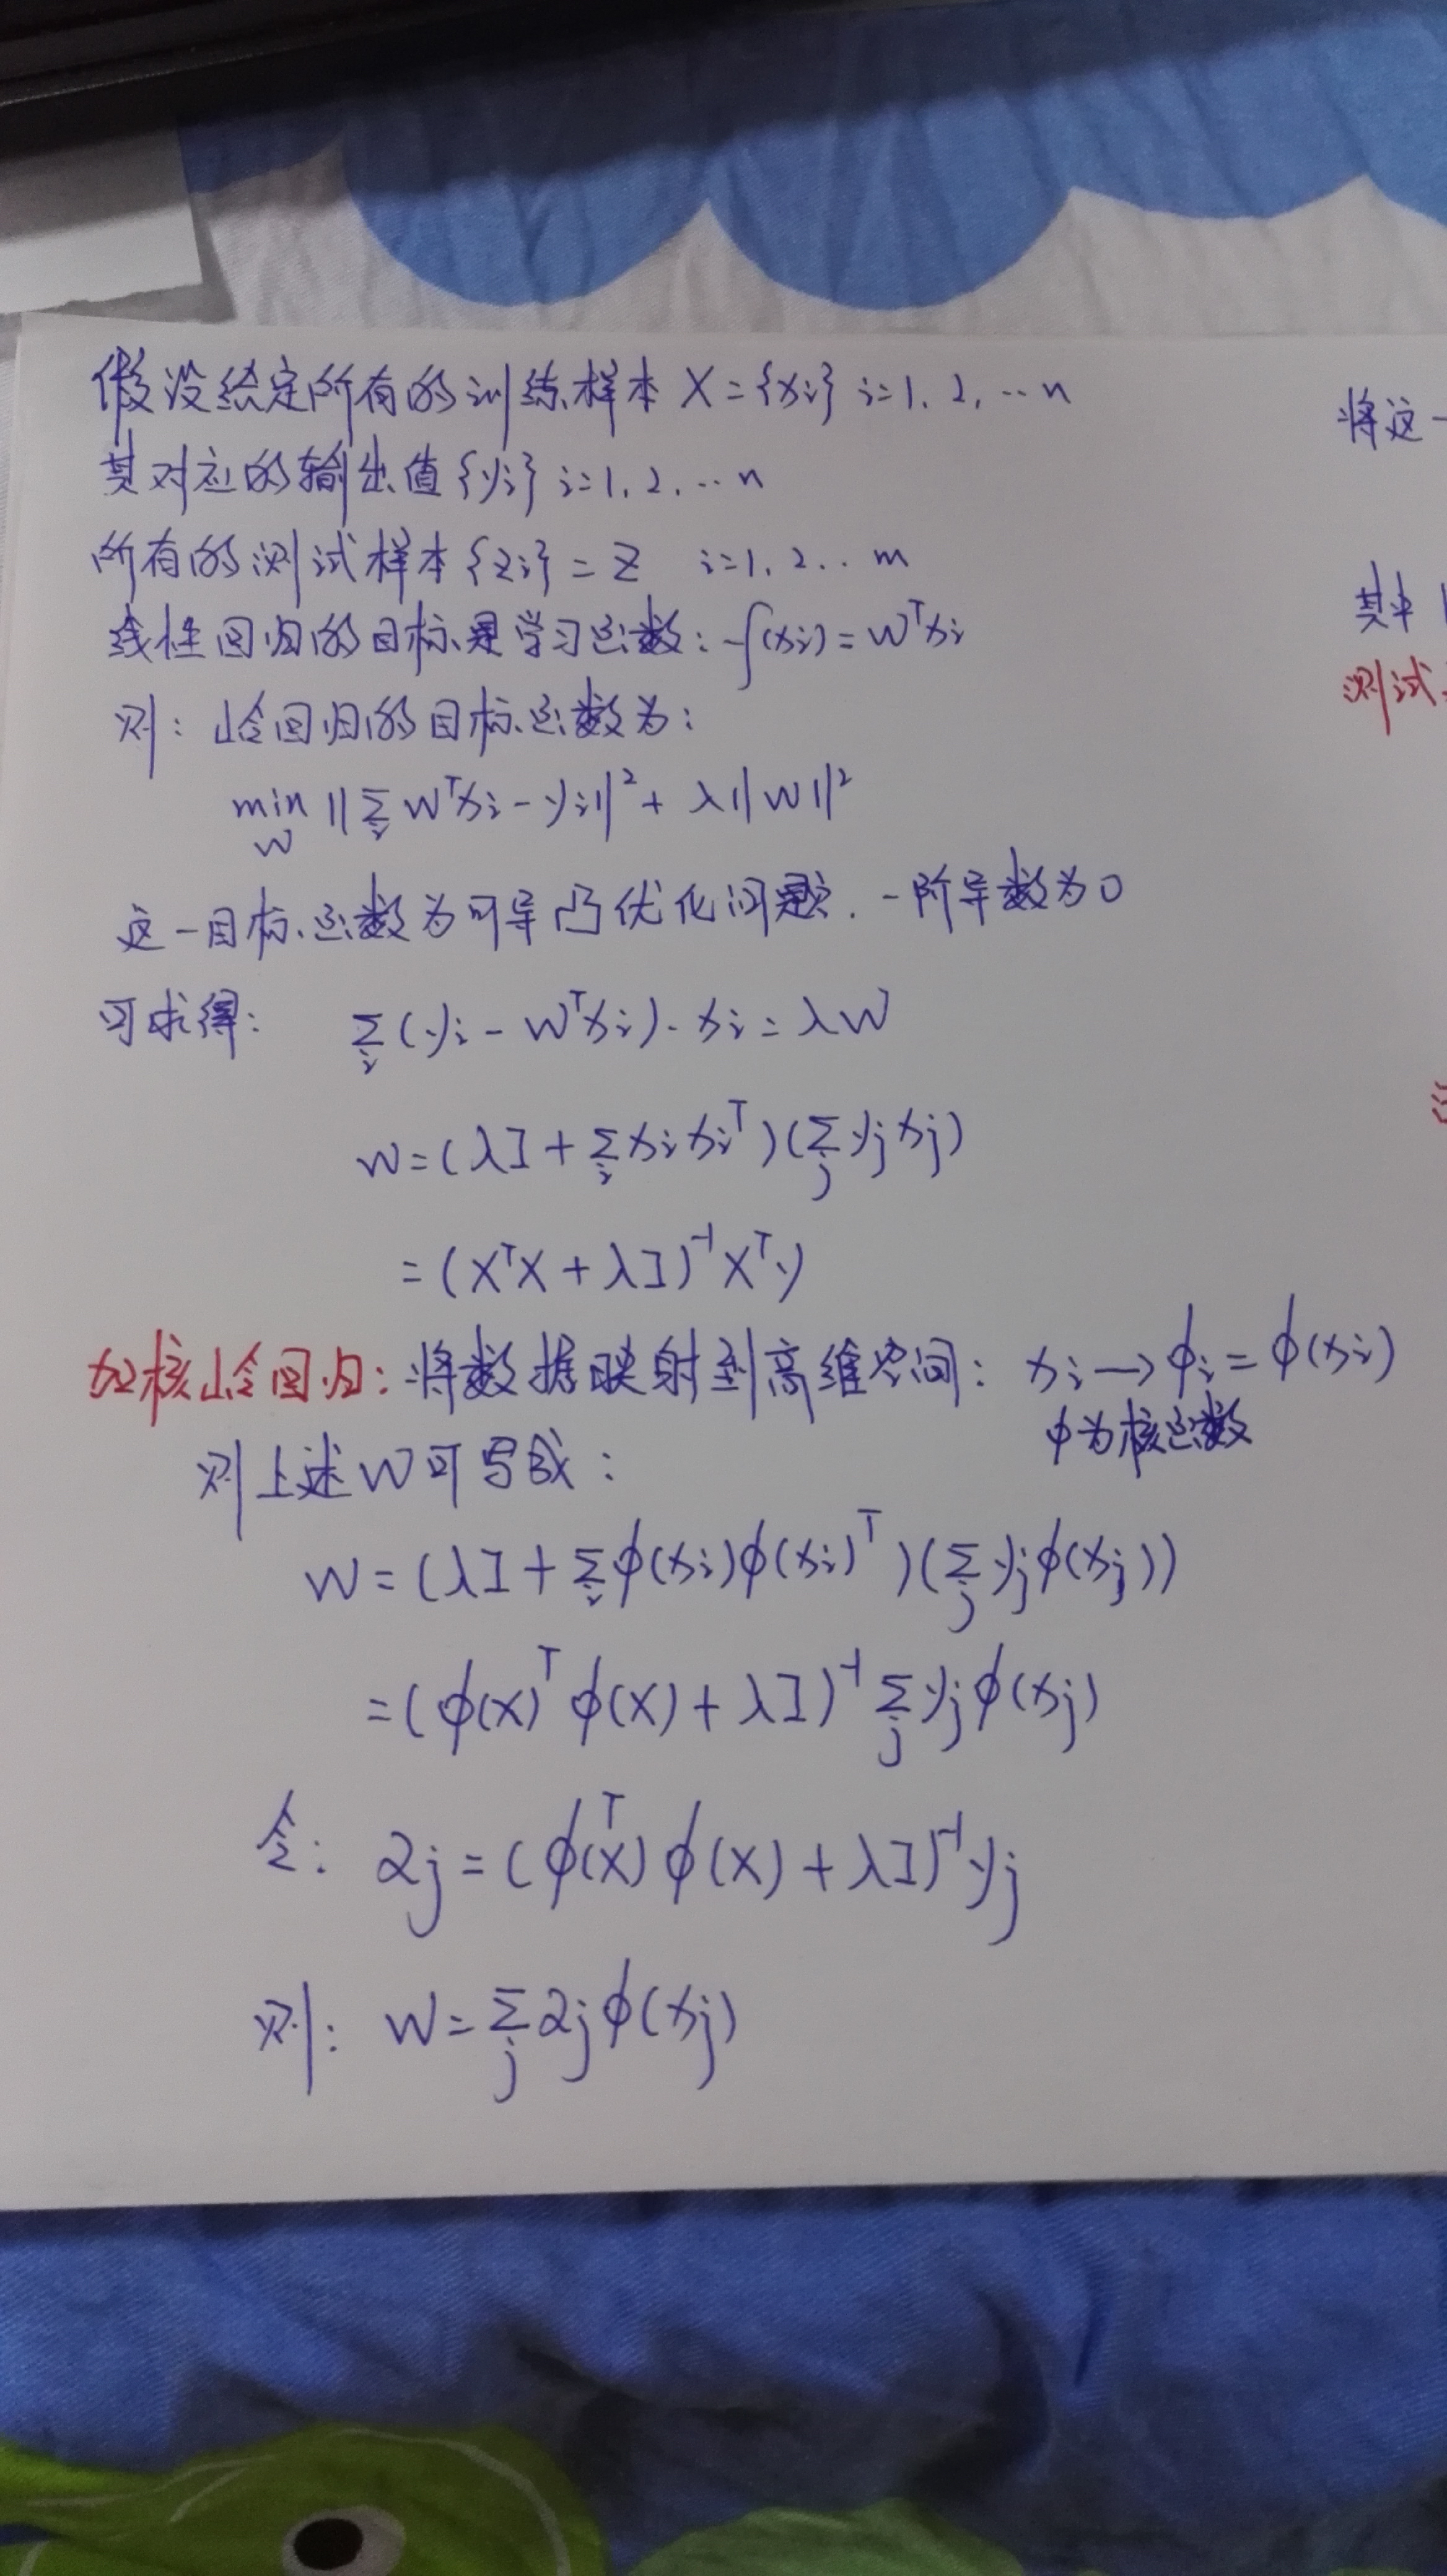 假设给定所有的训练样本 X = {xi} i=1, 2, ... n
其对应的输出值{yi} i=1, 2, ... n
所有的测试样本{zi} = Z i=1, 2 .. m
线性回归的目标是学习函数: f(xi) = wᵀxi
则: 岭回归的目标函数为:
min ‖Σ wᵀxi - yi‖² + λ‖w‖²
w i
这一目标函数为可导凸优化问题. 一阶导数为0
可求得: Σ (yi - wᵀxi)·xi = λw
i
w = (λI + Σ xi xiᵀ)(Σ yj xj)
i j
= (XᵀX + λI)⁻¹Xᵀy
加核岭回归: 将数据映射到高维空间: xi → ϕi = ϕ(xi)
ϕ为核函数
则上述w可写成:
w = (λI + Σ ϕ(xi)ϕ(xi)ᵀ)(Σ yjϕ(xj))
i j
= (ϕ(X)ᵀϕ(X) + λI)⁻¹ Σ yjϕ(xj)
j
令: αj = (ϕ(X)ᵀϕ(X) + λI)⁻¹yj
则: w = Σ αjϕ(xj)
j
将这一
其中
测试